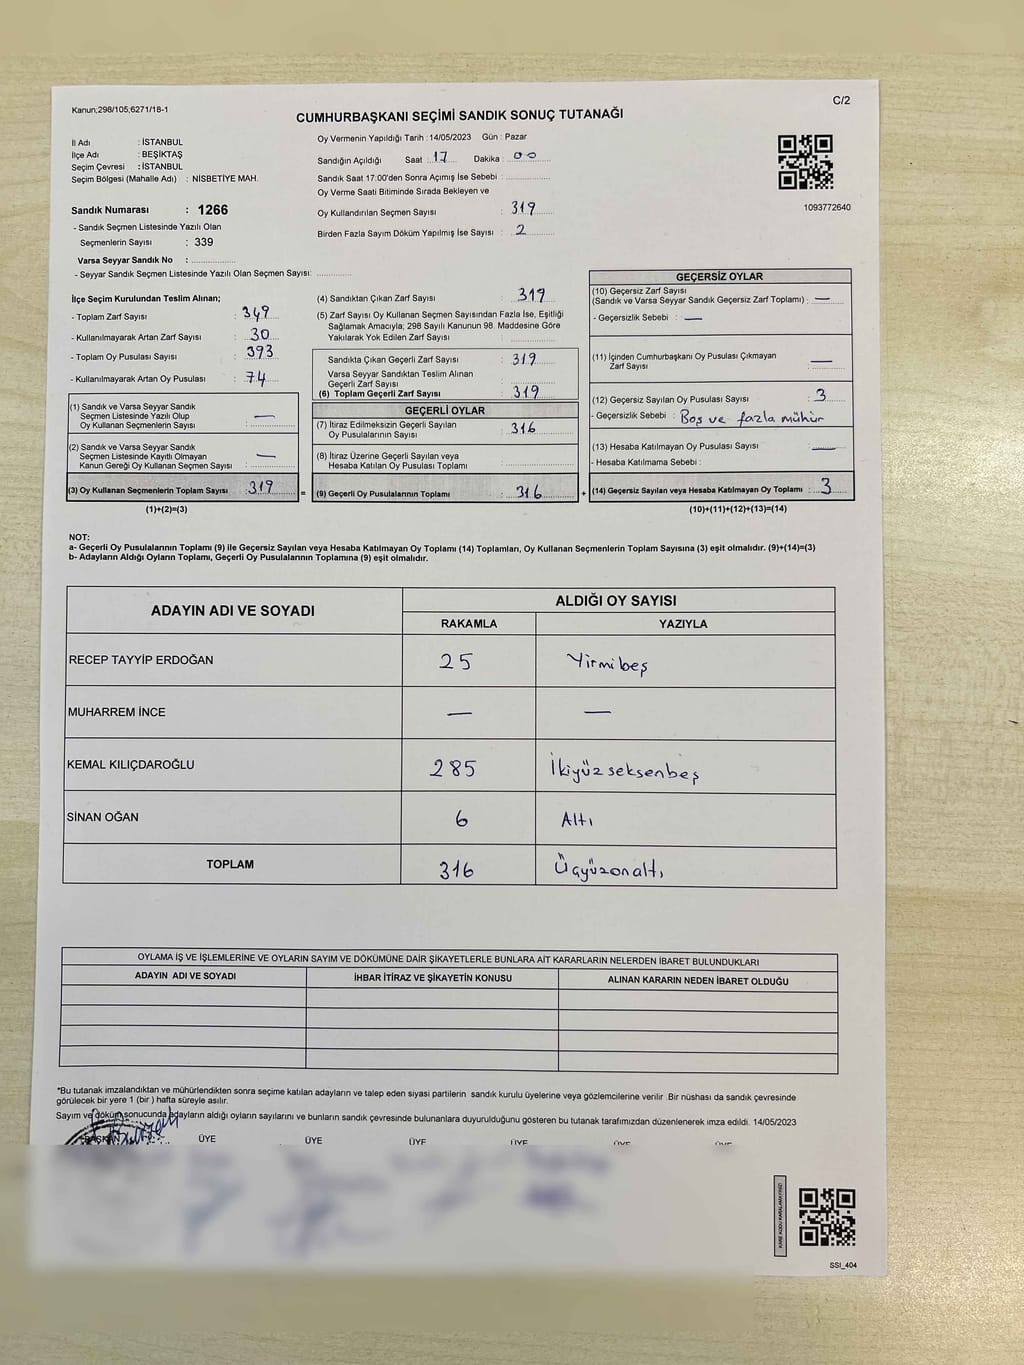 Kanun;298/105;6271/18-1
C/2
CUMHURBAŞKANI SEÇİMİ SANDIK SONUÇ TUTANAĞI
İl Adı : İSTANBUL
İlçe Adı : BEŞİKTAŞ
Seçim Çevresi : İSTANBUL
Seçim Bölgesi (Mahalle Adı) : NİSBETİYE MAH.
Sandık Numarası : 1266
- Sandık Seçmen Listesinde Yazılı Olan
Seçmenlerin Sayısı : 339
Varsa Seyyar Sandık No : ....................
- Seyyar Sandık Seçmen Listesinde Yazılı Olan Seçmen Sayısı: ..............
Oy Vermenin Yapıldığı Tarih : 14/05/2023 Gün : Pazar
Sandığın Açıldığı Saat 17 Dakika : 00
Sandık Saat 17:00'den Sonra Açımış İse Sebebi : ..................
Oy Verme Saati Bitiminde Sırada Bekleyen ve
Oy Kullandırılan Seçmen Sayısı : 319
Birden Fazla Sayım Döküm Yapılmış İse Sayısı : 2
1093772640
İlçe Seçim Kurulundan Teslim Alınan;
- Toplam Zarf Sayısı : 349
- Kullanılmayarak Artan Zarf Sayısı : 30
- Toplam Oy Pusulası Sayısı : 393
- Kullanılmayarak Artan Oy Pusulası : 74
(1) Sandık ve Varsa Seyyar Sandık
Seçmen Listesinde Yazılı Olup
Oy Kullanan Seçmenlerin Sayısı : —
(2) Sandık ve Varsa Seyyar Sandık
Seçmen Listesinde Kayıtlı Olmayan
Kanun Gereği Oy Kullanan Seçmen Sayısı : —
(3) Oy Kullanan Seçmenlerin Toplam Sayısı : 319 =
(1)+(2)=(3)
(4) Sandıktan Çıkan Zarf Sayısı : 319
(5) Zarf Sayısı Oy Kullanan Seçmen Sayısından Fazla İse, Eşitliği
Sağlamak Amacıyla; 298 Sayılı Kanunun 98. Maddesine Göre
Yakılarak Yok Edilen Zarf Sayısı : ..................
Sandıkta Çıkan Geçerli Zarf Sayısı : 319
Varsa Seyyar Sandıktan Teslim Alınan
Geçerli Zarf Sayısı : ..................
(6) Toplam Geçerli Zarf Sayısı : 319
GEÇERLİ OYLAR
(7) İtiraz Edilmeksizin Geçerli Sayılan
Oy Pusulalarının Sayısı : 316
(8) İtiraz Üzerine Geçerli Sayılan veya
Hesaba Katılan Oy Pusulası Toplamı : ..................
(9) Geçerli Oy Pusulalarının Toplamı : 316 +
GEÇERSİZ OYLAR
(10) Geçersiz Zarf Sayısı
(Sandık ve Varsa Seyyar Sandık Geçersiz Zarf Toplamı) : —
- Geçersizlik Sebebi : —
(11) İçinden Cumhurbaşkanı Oy Pusulası Çıkmayan
Zarf Sayısı : —
(12) Geçersiz Sayılan Oy Pusulası Sayısı : 3
- Geçersizlik Sebebi : Boş ve fazla mühür
(13) Hesaba Katılmayan Oy Pusulası Sayısı : —
- Hesaba Katılmama Sebebi :
(14) Geçersiz Sayılan veya Hesaba Katılmayan Oy Toplamı : 3
(10)+(11)+(12)+(13)=(14)
NOT:
a- Geçerli Oy Pusulalarının Toplamı (9) ile Geçersiz Sayılan veya Hesaba Katılmayan Oy Toplamı (14) Toplamları, Oy Kullanan Seçmenlerin Toplam Sayısına (3) eşit olmalıdır. (9)+(14)=(3)
b- Adayların Aldığı Oyların Toplamı, Geçerli Oy Pusulalarının Toplamına (9) eşit olmalıdır.
ADAYIN ADI VE SOYADI ALDIĞI OY SAYISI
RAKAMLA YAZIYLA
RECEP TAYYİP ERDOĞAN 25 Yirmibeş
MUHARREM İNCE — —
KEMAL KILIÇDAROĞLU 285 İkiyüzseksenbeş
SİNAN OĞAN 6 Altı
TOPLAM 316 Üçyüzonaltı
OYLAMA İŞ VE İŞLEMLERİNE VE OYLARIN SAYIM VE DÖKÜMÜNE DAİR ŞİKAYETLERLE BUNLARA AİT KARARLARIN NELERDEN İBARET BULUNDUKLARI
ADAYIN ADI VE SOYADI İHBAR İTİRAZ VE ŞİKAYETİN KONUSU ALINAN KARARIN NEDEN İBARET OLDUĞU
*Bu tutanak imzalandıktan ve mühürlendikten sonra seçime katılan adayların ve talep eden siyasi partilerin sandık kurulu üyelerine veya gözlemcilerine verilir .Bir nüshası da sandık çevresinde
görülecek bir yere 1 (bir ) hafta süreyle asılır.
Sayım ve döküm sonucunda adayların aldığı oyların sayılarını ve bunların sandık çevresinde bulunanlara duyurulduğunu gösteren bu tutanak tarafımızdan düzenlenerek imza edildi. 14/05/2023
BAŞKAN ÜYE ÜYE ÜYE ÜYE ÜYE ÜYE
KARE KODU KARALAMAYINIZ!
SSİ_404